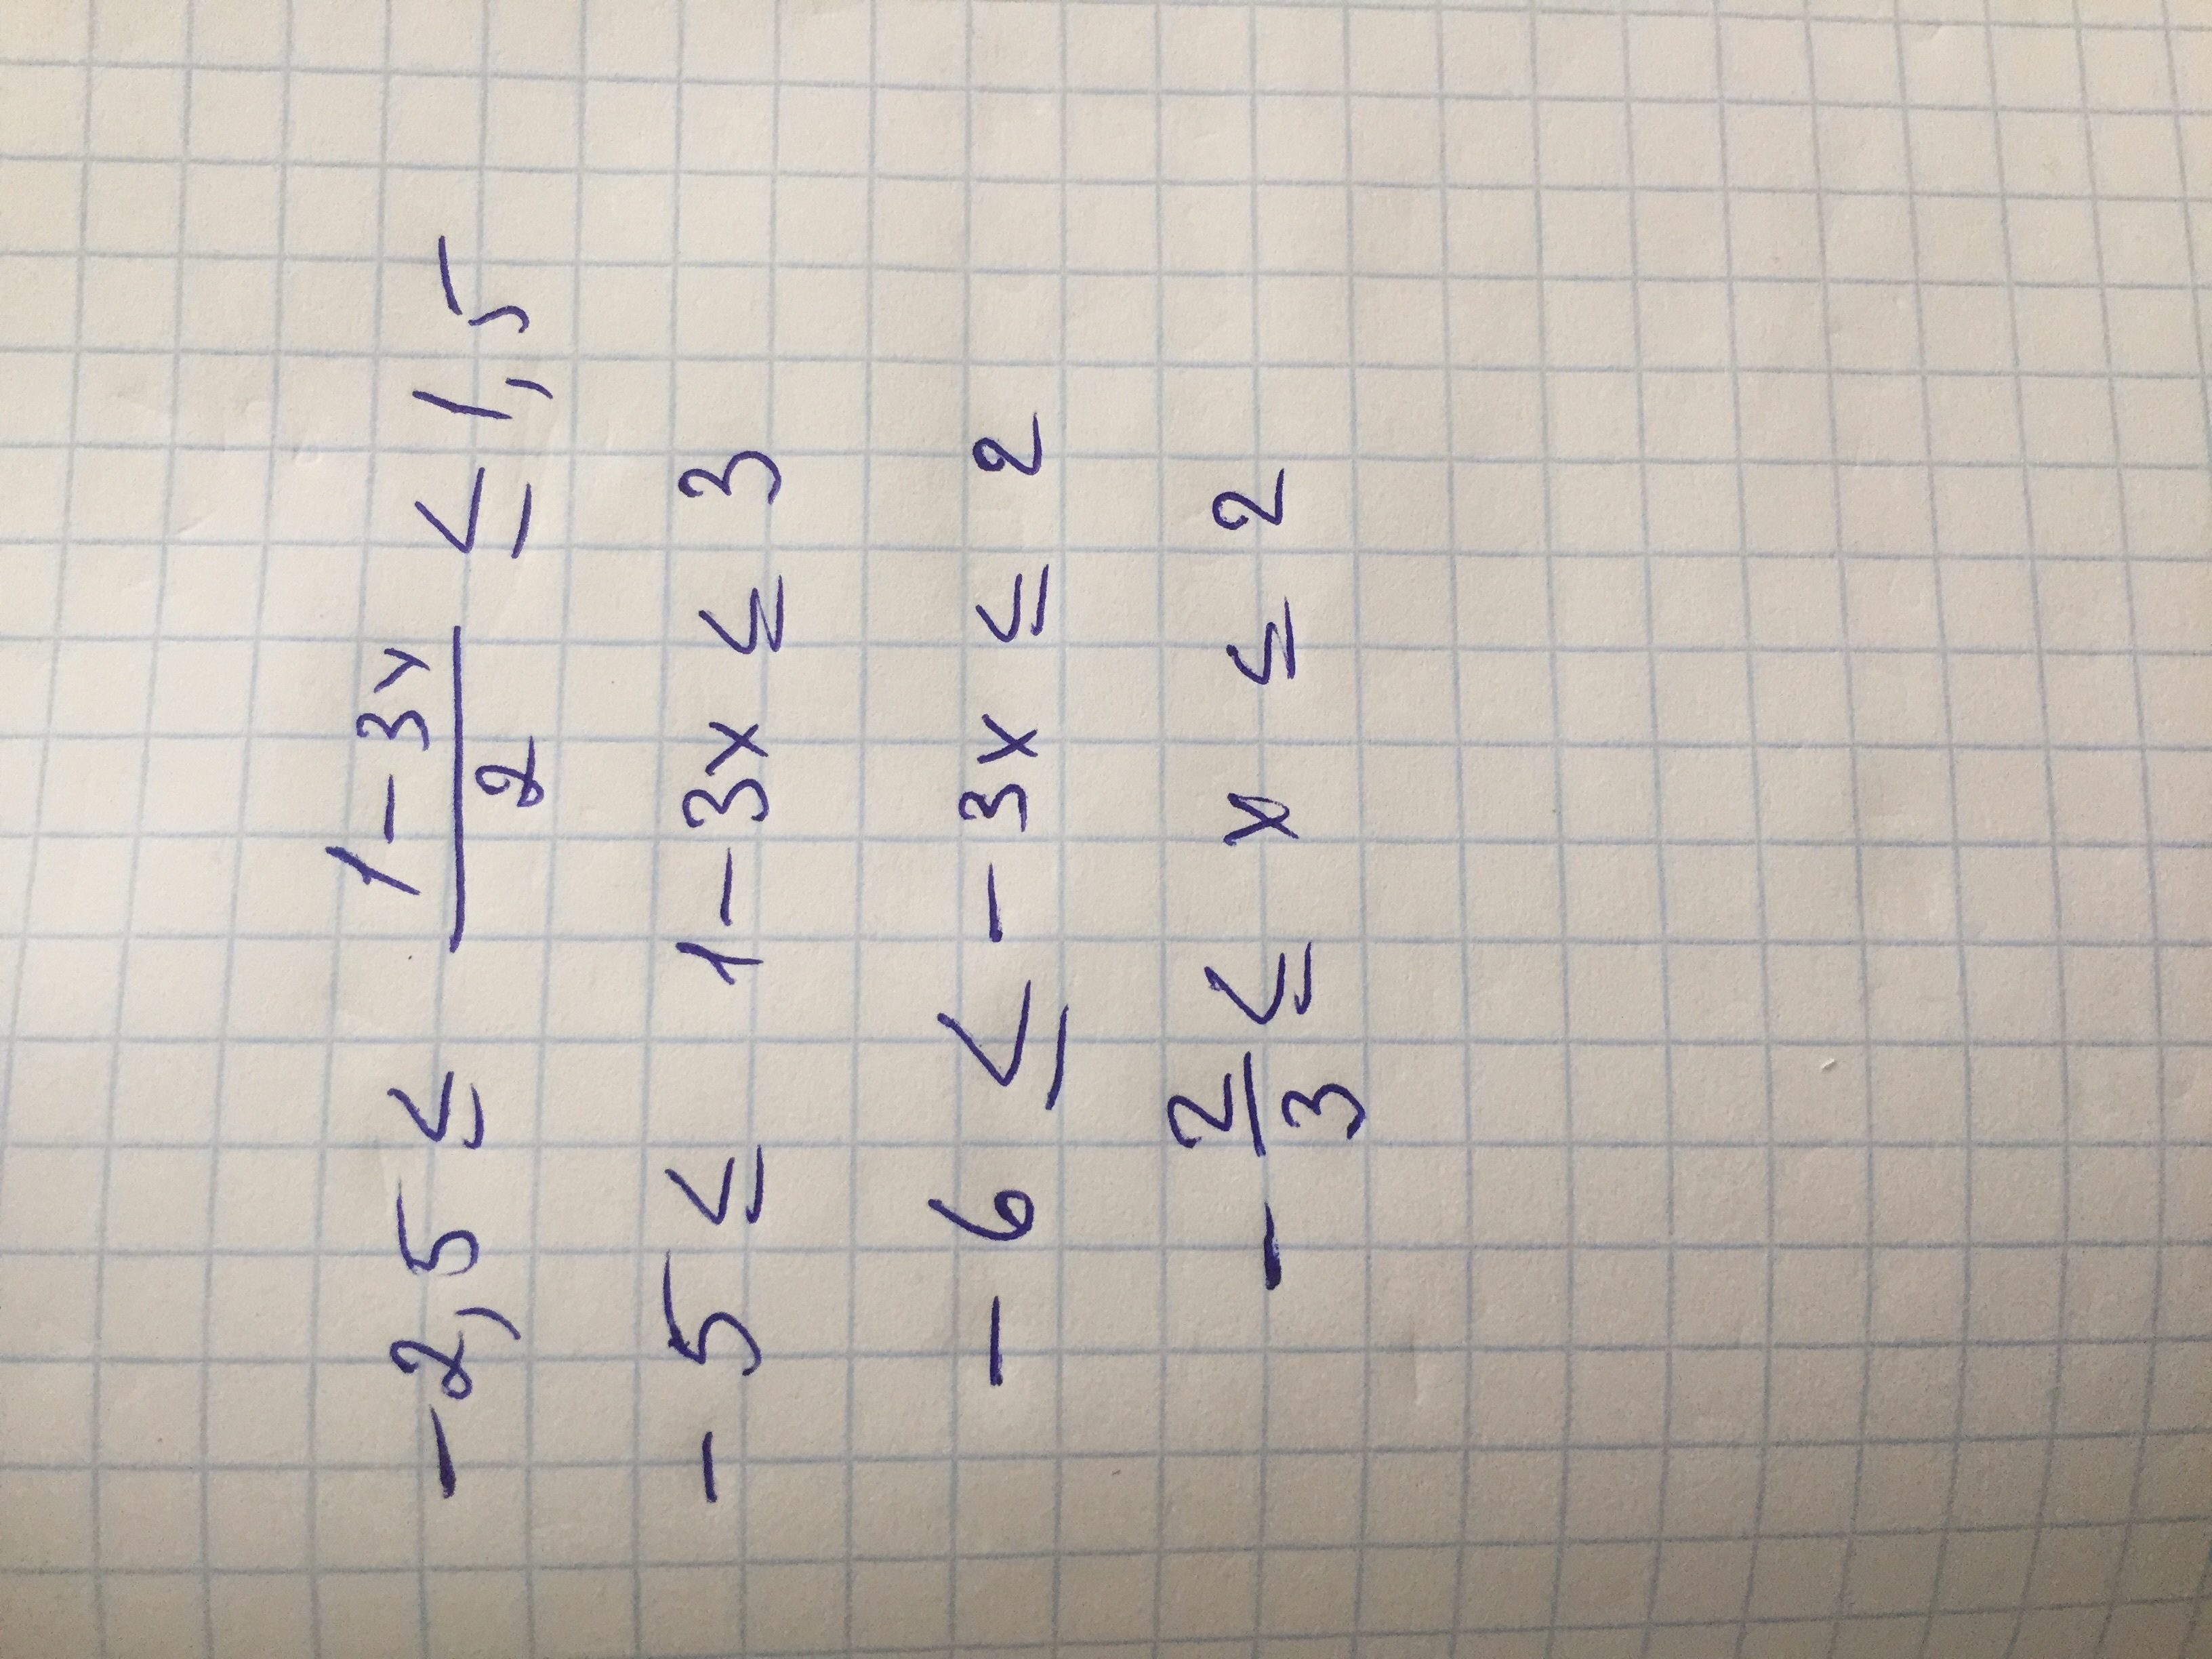 -2,5 ≤ (1-3x)/2 ≤ 1,5
-5 ≤ 1-3x ≤ 3
-6 ≤ -3x ≤ 2
-2/3 ≤ x ≤ 2